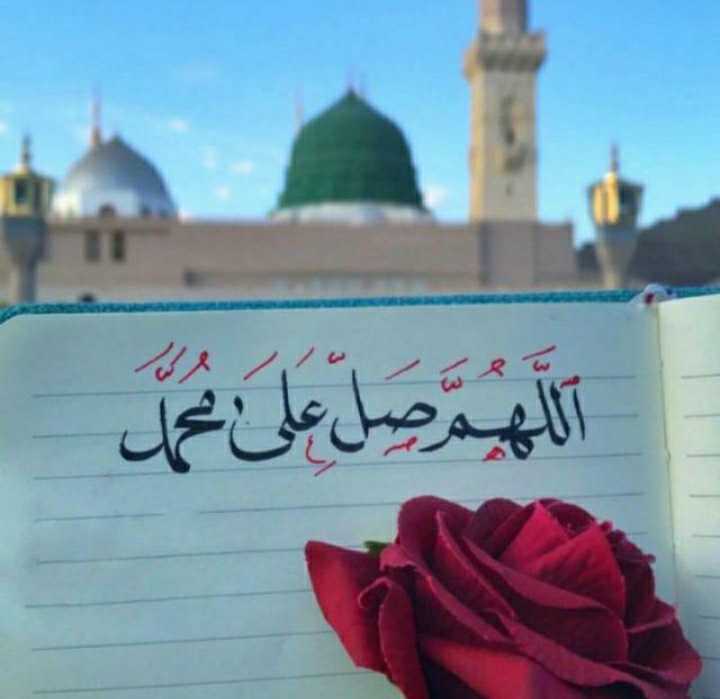 اَللّٰهُمَّ صَلِّ عَلَىٰ مُحَمَّدٍ